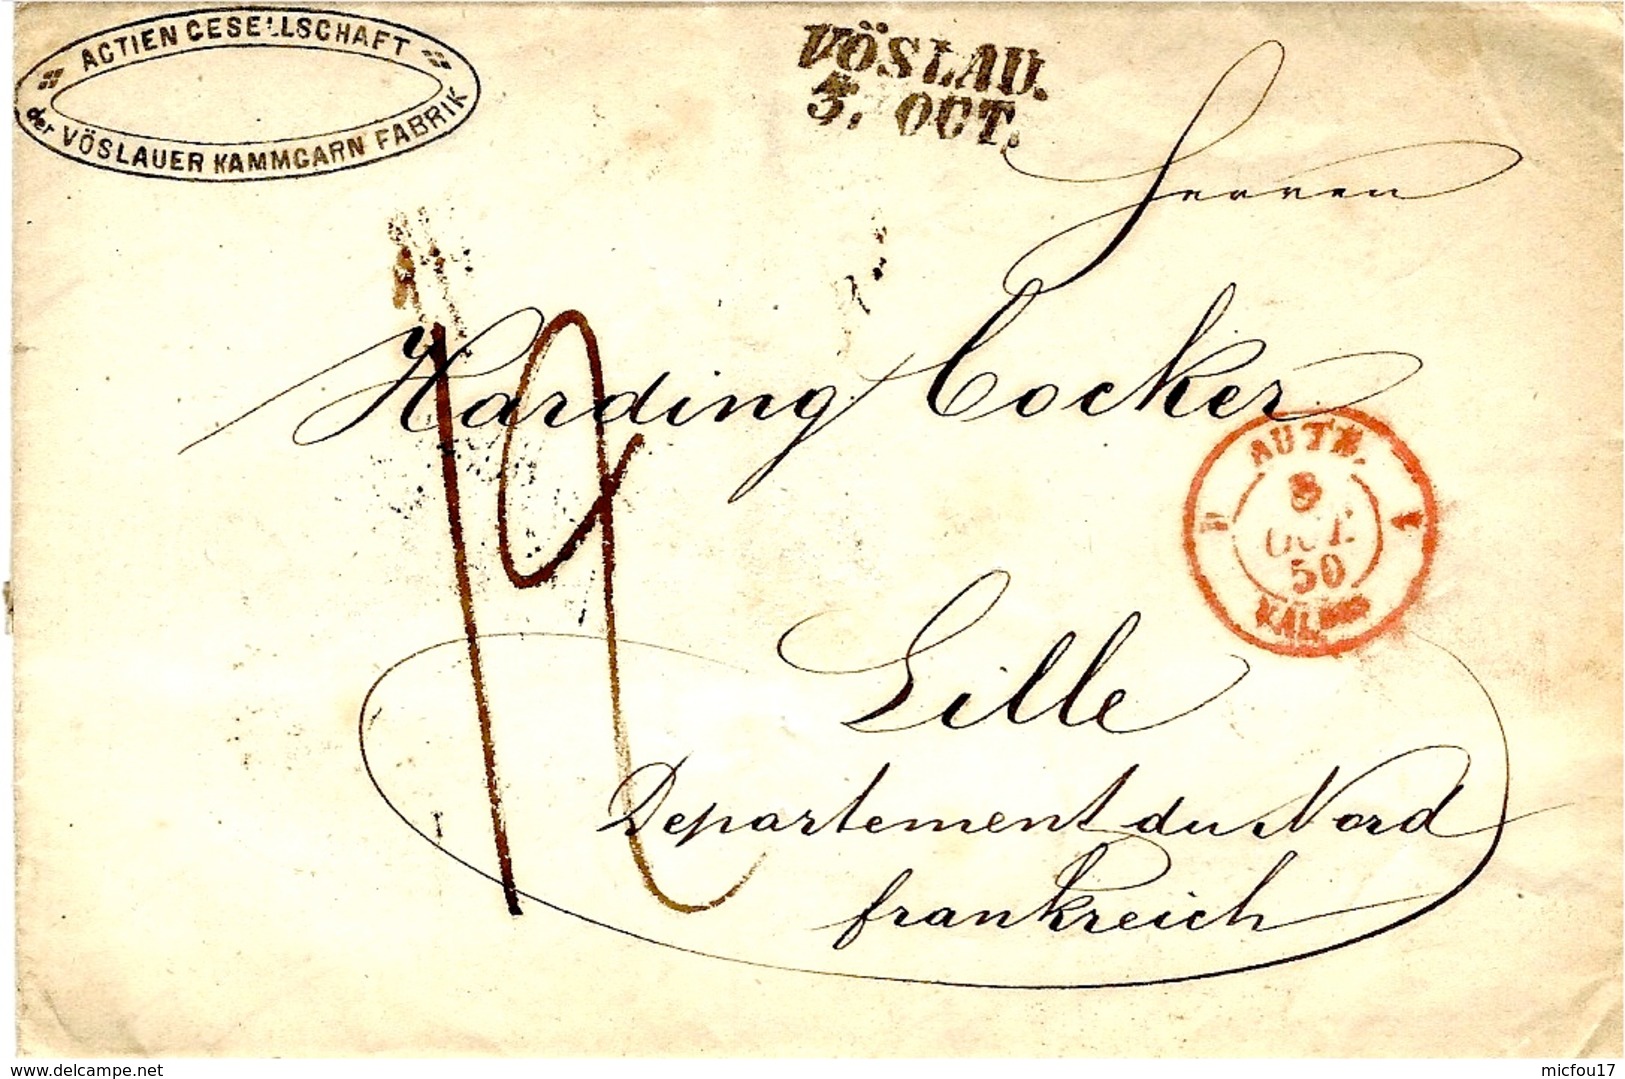 ACTIEN GESELLSCHAFT
der VÖSLAUER KAMMGARN FABRIK
VÖSLAU.
5. OCT.
Herren
Harding Cocker
19
AUTR.
8
OCT.
50
Lille
Departement du Nord
frankreich
delcampe.net
micfou17